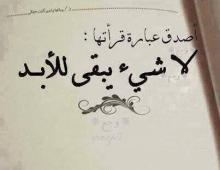 أصدق عبارة قرأتها :
لا شيء يبقى للأبد